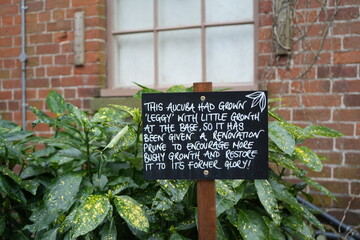 THIS AUCUBA HAD GROWN
'LEGGY' WITH LITTLE GROWTH
AT THE BASE, SO IT HAS
BEEN GIVEN A RENOVATION
PRUNE TO ENCOURAGE MORE
BUSHY GROWTH AND RESTORE
IT TO ITS FORMER GLORY!